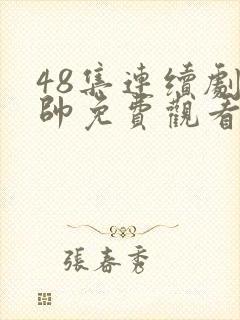 48集連續劇
帥免費觀看
張春秀